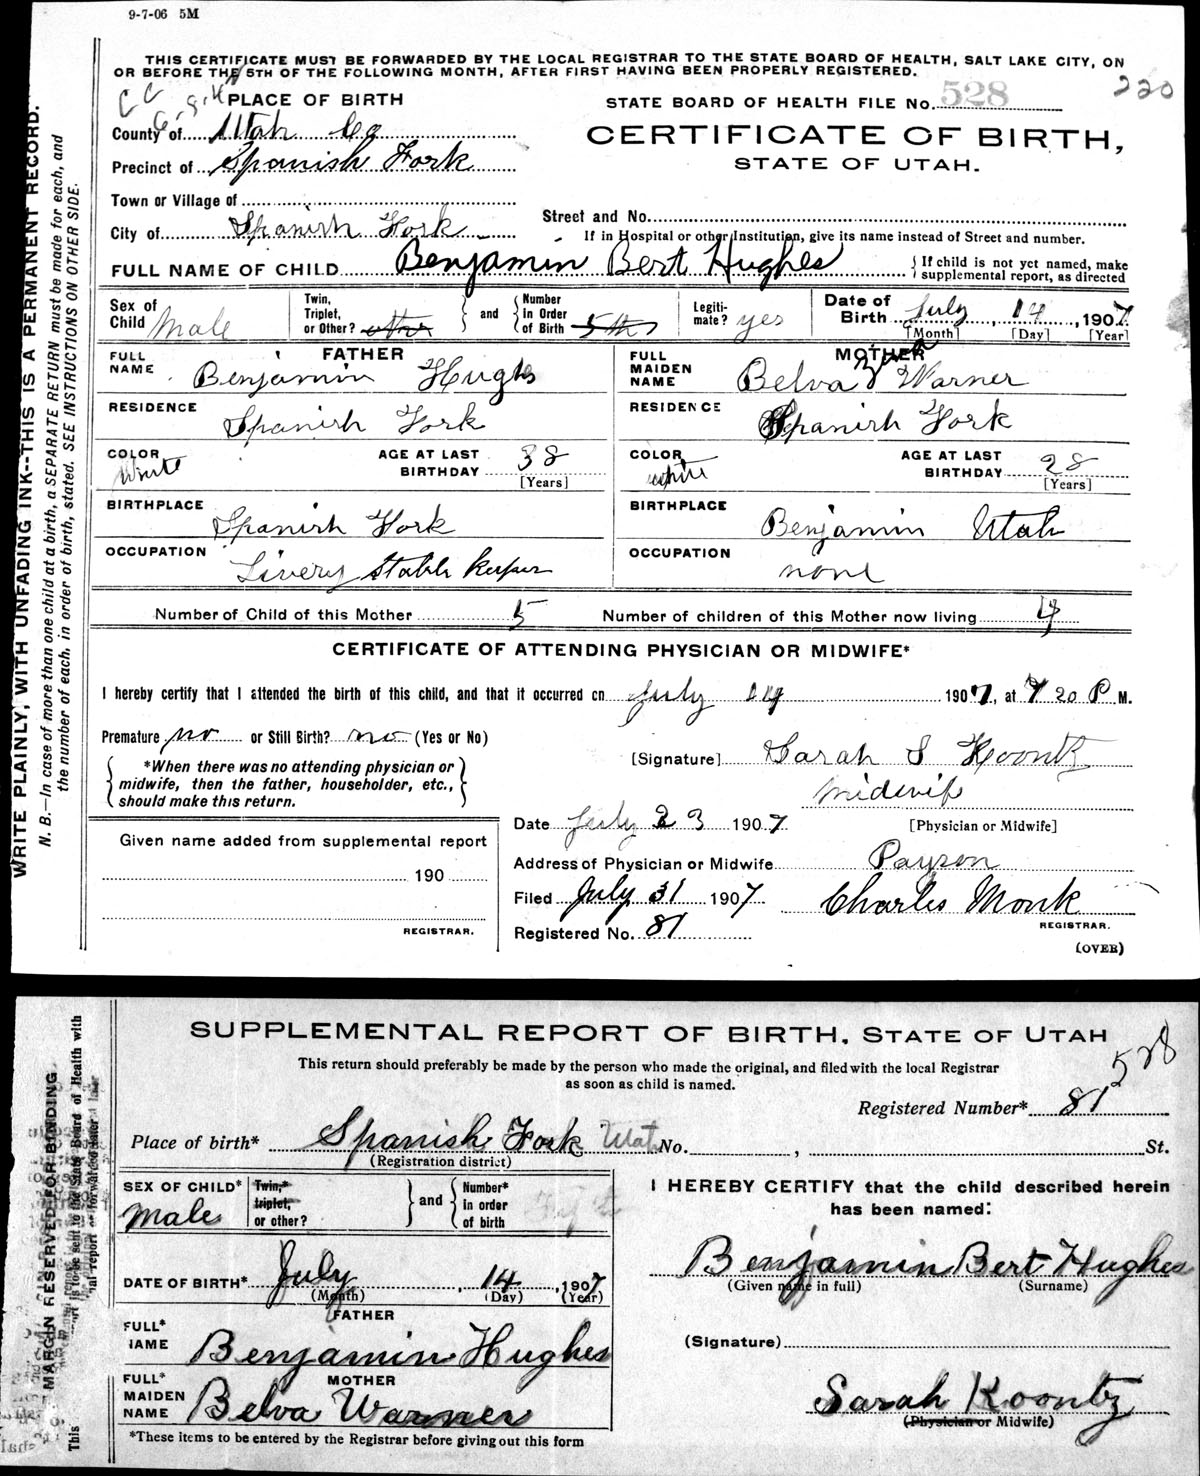 9-7-06 5M
THIS CERTIFICATE MUST BE FORWARDED BY THE LOCAL REGISTRAR TO THE STATE BOARD OF HEALTH, SALT LAKE CITY, ON
OR BEFORE THE 5TH OF THE FOLLOWING MONTH, AFTER FIRST HAVING BEEN PROPERLY REGISTERED.
220
PLACE OF BIRTH
STATE BOARD OF HEALTH FILE No. 528
County of Utah Co
CERTIFICATE OF BIRTH,
STATE OF UTAH.
Precinct of Spanish Fork
Town or Village of
Street and No.
City of Spanish Fork
If in Hospital or other Institution, give its name instead of Street and number.
FULL NAME OF CHILD Benjamin Bert Hughes
{If child is not yet named, make
supplemental report, as directed
Sex of Child Male
Twin, Triplet, or Other? and Number in Order of Birth 5th
Legiti-mate? yes
Date of Birth July 14, 1907
[Month] [Day] [Year]
FATHER
FULL NAME Benjamin Hughes
RESIDENCE Spanish Fork
COLOR White AGE AT LAST BIRTHDAY 38
[Years]
BIRTHPLACE Spanish Fork
OCCUPATION Livery Stable Keeper
MOTHER
FULL MAIDEN NAME Belva Warner
RESIDENCE Spanish Fork
COLOR white AGE AT LAST BIRTHDAY 28
[Years]
BIRTHPLACE Benjamin Utah
OCCUPATION none
Number of Child of this Mother 5 Number of children of this Mother now living 4
CERTIFICATE OF ATTENDING PHYSICIAN OR MIDWIFE*
I hereby certify that I attended the birth of this child, and that it occurred on July 14 1907, at 7 20 P M.
Premature no or Still Birth? no (Yes or No)
[Signature] Sarah S Koontz
{*When there was no attending physician or
midwife, then the father, householder, etc.,
should make this return.}
Midwife
[Physician or Midwife]
Date July 23 1907
Given name added from supplemental report
190
REGISTRAR.
Address of Physician or Midwife Payson
Filed July 31 1907 Charles Monk
REGISTRAR.
Registered No. 81
(OVER)
WRITE PLAINLY, WITH UNFADING INK--THIS IS A PERMANENT RECORD.
N. B.—In case of more than one child at a birth, a SEPARATE RETURN must be made for each, and
the number of each, in order of birth, stated. SEE INSTRUCTIONS ON OTHER SIDE.
SUPPLEMENTAL REPORT OF BIRTH, STATE OF UTAH
This return should preferably be made by the person who made the original, and filed with the local Registrar
as soon as child is named.
528
Registered Number* 81
Place of birth* Spanish Fork Utah No. , St.
(Registration district)
SEX OF CHILD* Male
Twin,* triplet, or other? and Number* in order of birth
DATE OF BIRTH* July 14, 1907
(Month) (Day) (Year)
FATHER
FULL* NAME Benjamin Hughes
MOTHER
FULL* MAIDEN NAME Belva Warner
*These items to be entered by the Registrar before giving out this form
I HEREBY CERTIFY that the child described herein
has been named:
Benjamin Bert Hughes
(Given name in full) (Surname)
(Signature)
Sarah Koontz
(Physician or Midwife)
MARGIN RESERVED FOR BINDING